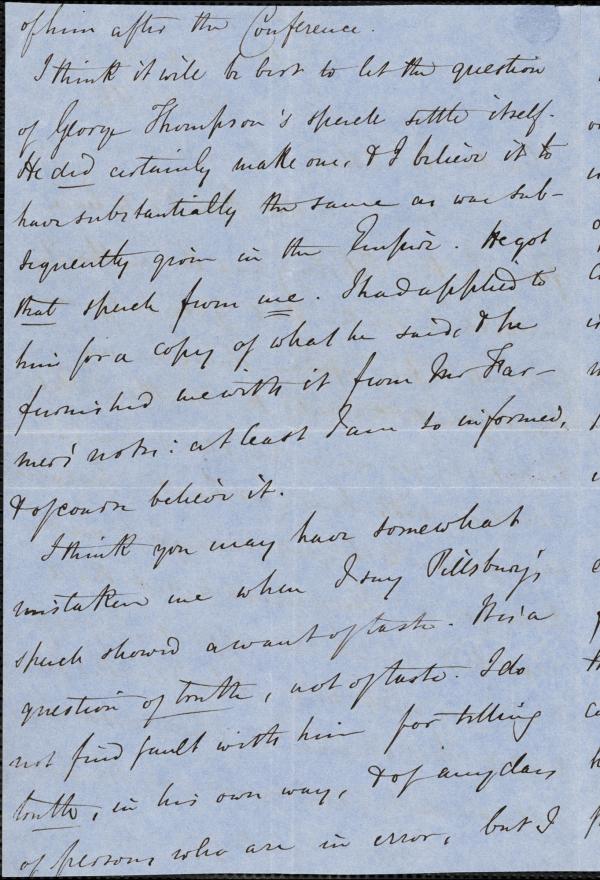 of him after the Conference.
I think it will be best to let the question
of George Thompson's speech settle itself.
He did certainly make one, & I believe it to
have substantially the same as was sub-
sequently given in the Empire. He got
that speech from me. I had applied to
him for a copy of what he said, & he
furnished me with it from Mr Far-
mer's notes: at least I am so informed,
& of course believe it.
I think you may have somewhat
mistaken me when I say Pillsbury's
speech showed a want of taste. It is a
question of truth, not of taste. I do
not find fault with him for telling
truth, in his own way, & of any class
of persons who are in error, but I